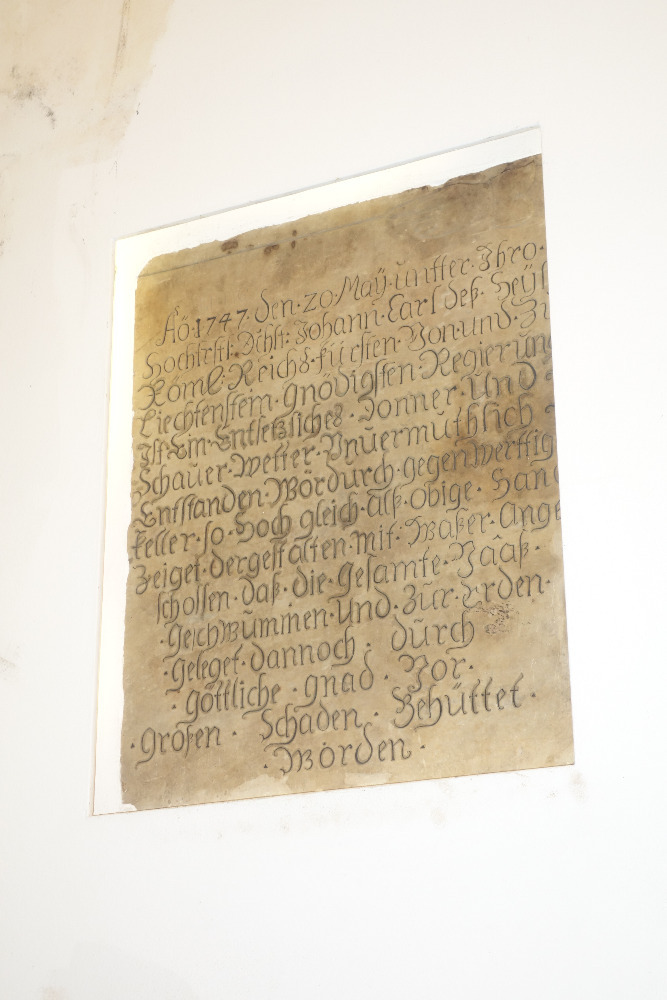 Aö·1747·den·20·Maÿ·üntter·Ihro·
Hochfrstl·Dchst·Johann·Carl deß·Heÿl
Röml·Reichs·fürsten·Von·und·Zu
Liechtenstein·gnödigsten·Regierüng
Ist·Ein·Entsetzliches·Donner·Und·
Schauer·Wetter·Vnüermüthlich·
Entstanden·Wördurch·gegenwerttig
keller·so·Hoch gleich·alß·obige·Hand
Zeiget·dergestalten·mit·Waßer·Ange
schossen·daß·die·gesamte·Vâaß·
·geschwümmen·Und·Zür·Erden·
·geleget·dannoch·dürch
·göttliche·gnad·Vor·
·großen·Schaden·Behüttet·
·Wörden·